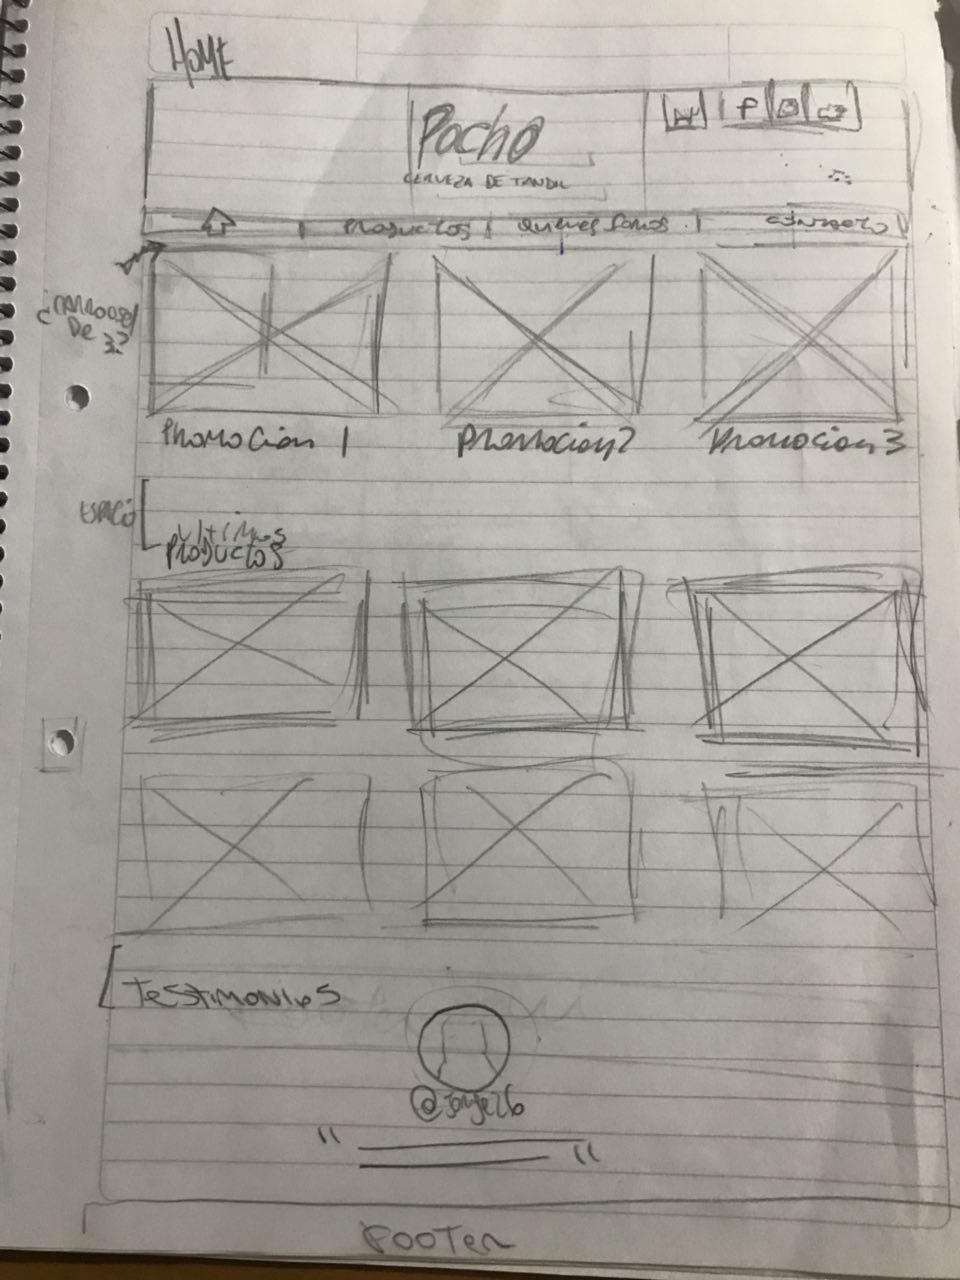 HOME
Pocho
CERVEZA DE TANDIL
Productos | quienes somos | contacto
¿CARROUSEL
DE 3?
PROMOCION 1
PROMOCION 2
PROMOCION 3
ESPACIO
ULTIMOS
PRODUCTOS
TESTIMONIOS
@Jorge26
" "
FOOTER